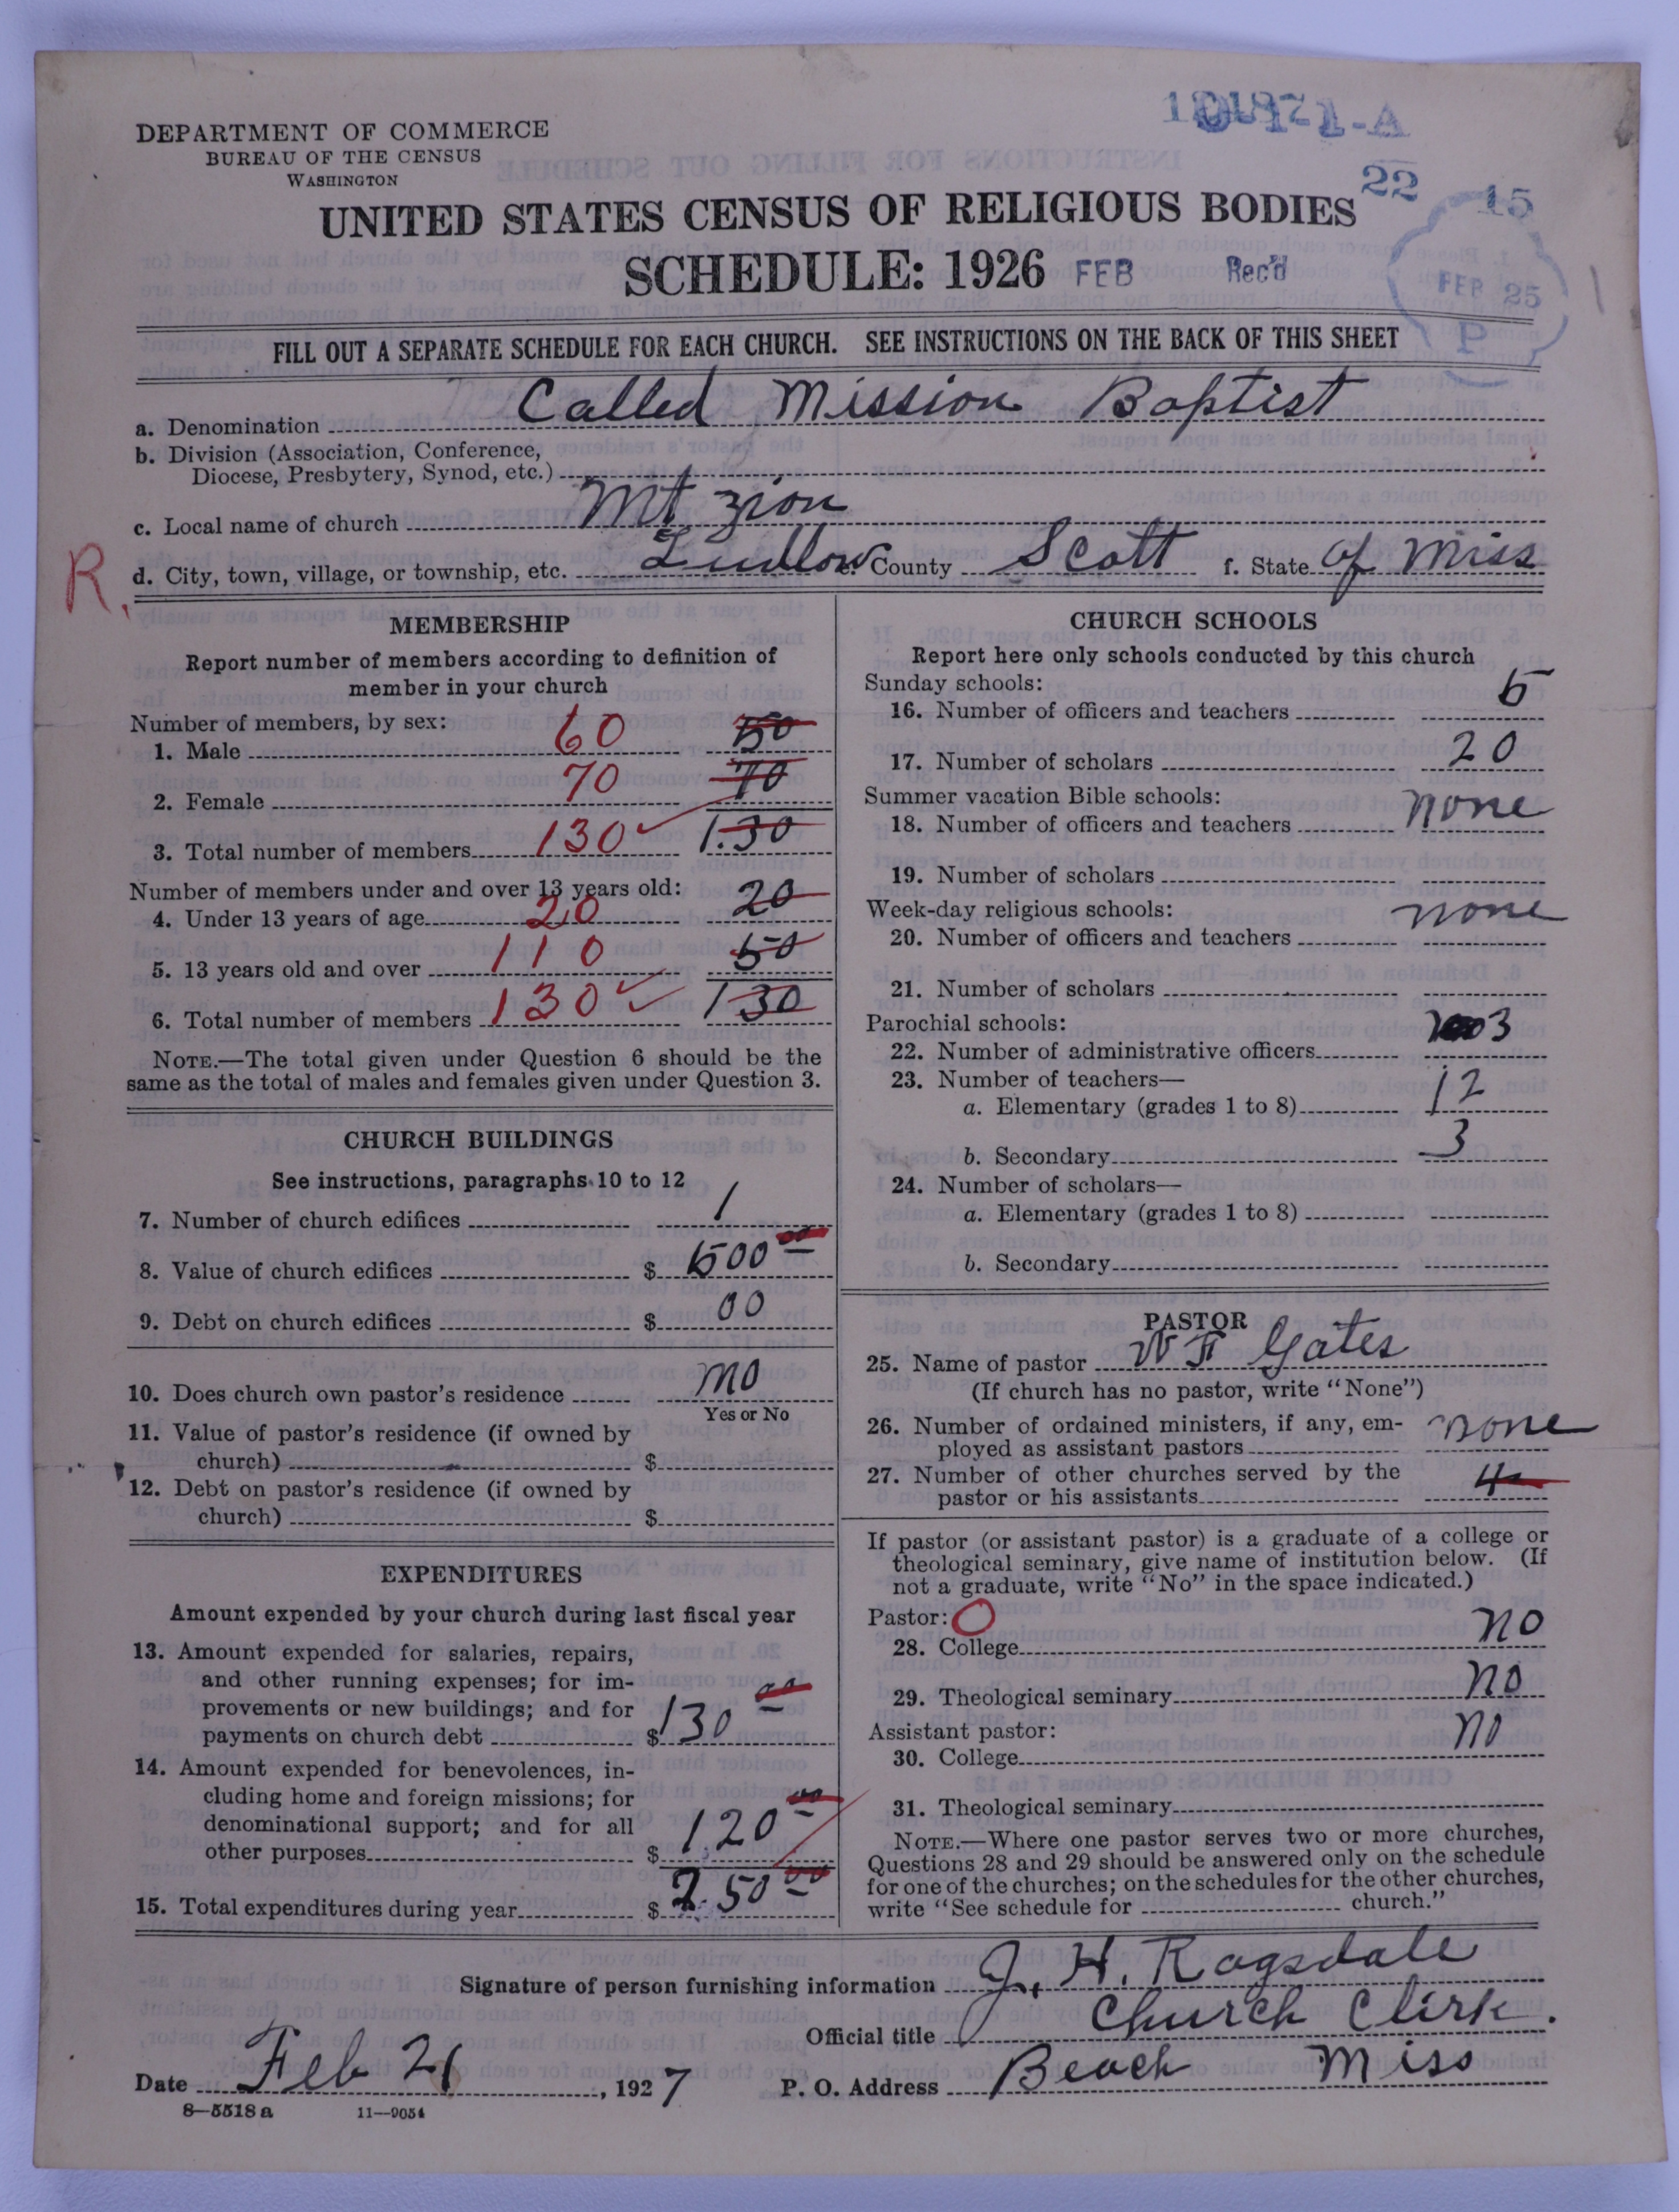 DEPARTMENT OF COMMERCE
BUREAU OF THE CENSUS
WASHINGTON
UNITED STATES CENSUS OF RELIGIOUS BODIES
22 15
SCHEDULE: 1926 FEB Rec'd
FEB 25
P
FILL OUT A SEPARATE SCHEDULE FOR EACH CHURCH. SEE INSTRUCTIONS ON THE BACK OF THIS SHEET
a. Denomination Called Mission Baptist
b. Division (Association, Conference,
Diocese, Presbytery, Synod, etc.)
c. Local name of church Mt zion
R. d. City, town, village, or township, etc. Ludlow e. County Scott f. State of Miss
MEMBERSHIP
Report number of members according to definition of
member in your church
Number of members, by sex:
1. Male 60
2. Female 70 70
3. Total number of members 130 1.30
Number of members under and over 13 years old:
4. Under 13 years of age 20 20
5. 13 years old and over 110 50
6. Total number of members 130 130
NOTE.—The total given under Question 6 should be the
same as the total of males and females given under Question 3.
CHURCH BUILDINGS
See instructions, paragraphs 10 to 12
7. Number of church edifices 1
8. Value of church edifices $ 500 00
9. Debt on church edifices $ 00
10. Does church own pastor's residence no
Yes or No
11. Value of pastor's residence (if owned by
church) $
12. Debt on pastor's residence (if owned by
church) $
EXPENDITURES
Amount expended by your church during last fiscal year
13. Amount expended for salaries, repairs,
and other running expenses; for im-
provements or new buildings; and for
payments on church debt $ 130 00
14. Amount expended for benevolences, in-
cluding home and foreign missions; for
denominational support; and for all
other purposes $ 120 00
15. Total expenditures during year $ 2.50 00
CHURCH SCHOOLS
Report here only schools conducted by this church
Sunday schools:
16. Number of officers and teachers 5
17. Number of scholars 20
Summer vacation Bible schools:
18. Number of officers and teachers none
19. Number of scholars
Week-day religious schools:
20. Number of officers and teachers none
21. Number of scholars
Parochial schools:
22. Number of administrative officers 3
23. Number of teachers—
a. Elementary (grades 1 to 8) 12
b. Secondary 3
24. Number of scholars—
a. Elementary (grades 1 to 8)
b. Secondary
PASTOR
25. Name of pastor W F Gates
(If church has no pastor, write "None")
26. Number of ordained ministers, if any, em-
ployed as assistant pastors none
27. Number of other churches served by the
pastor or his assistants 4
If pastor (or assistant pastor) is a graduate of a college or
theological seminary, give name of institution below. (If
not a graduate, write "No" in the space indicated.)
Pastor: O
28. College no
29. Theological seminary no
Assistant pastor:
30. College no
31. Theological seminary
NOTE.—Where one pastor serves two or more churches,
Questions 28 and 29 should be answered only on the schedule
for one of the churches; on the schedules for the other churches,
write "See schedule for church."
Signature of person furnishing information J. H. Ragsdale
Official title Church Clirk.
Date Feb 21, 1927 P. O. Address Beach Miss
8—5518 a 11—9054